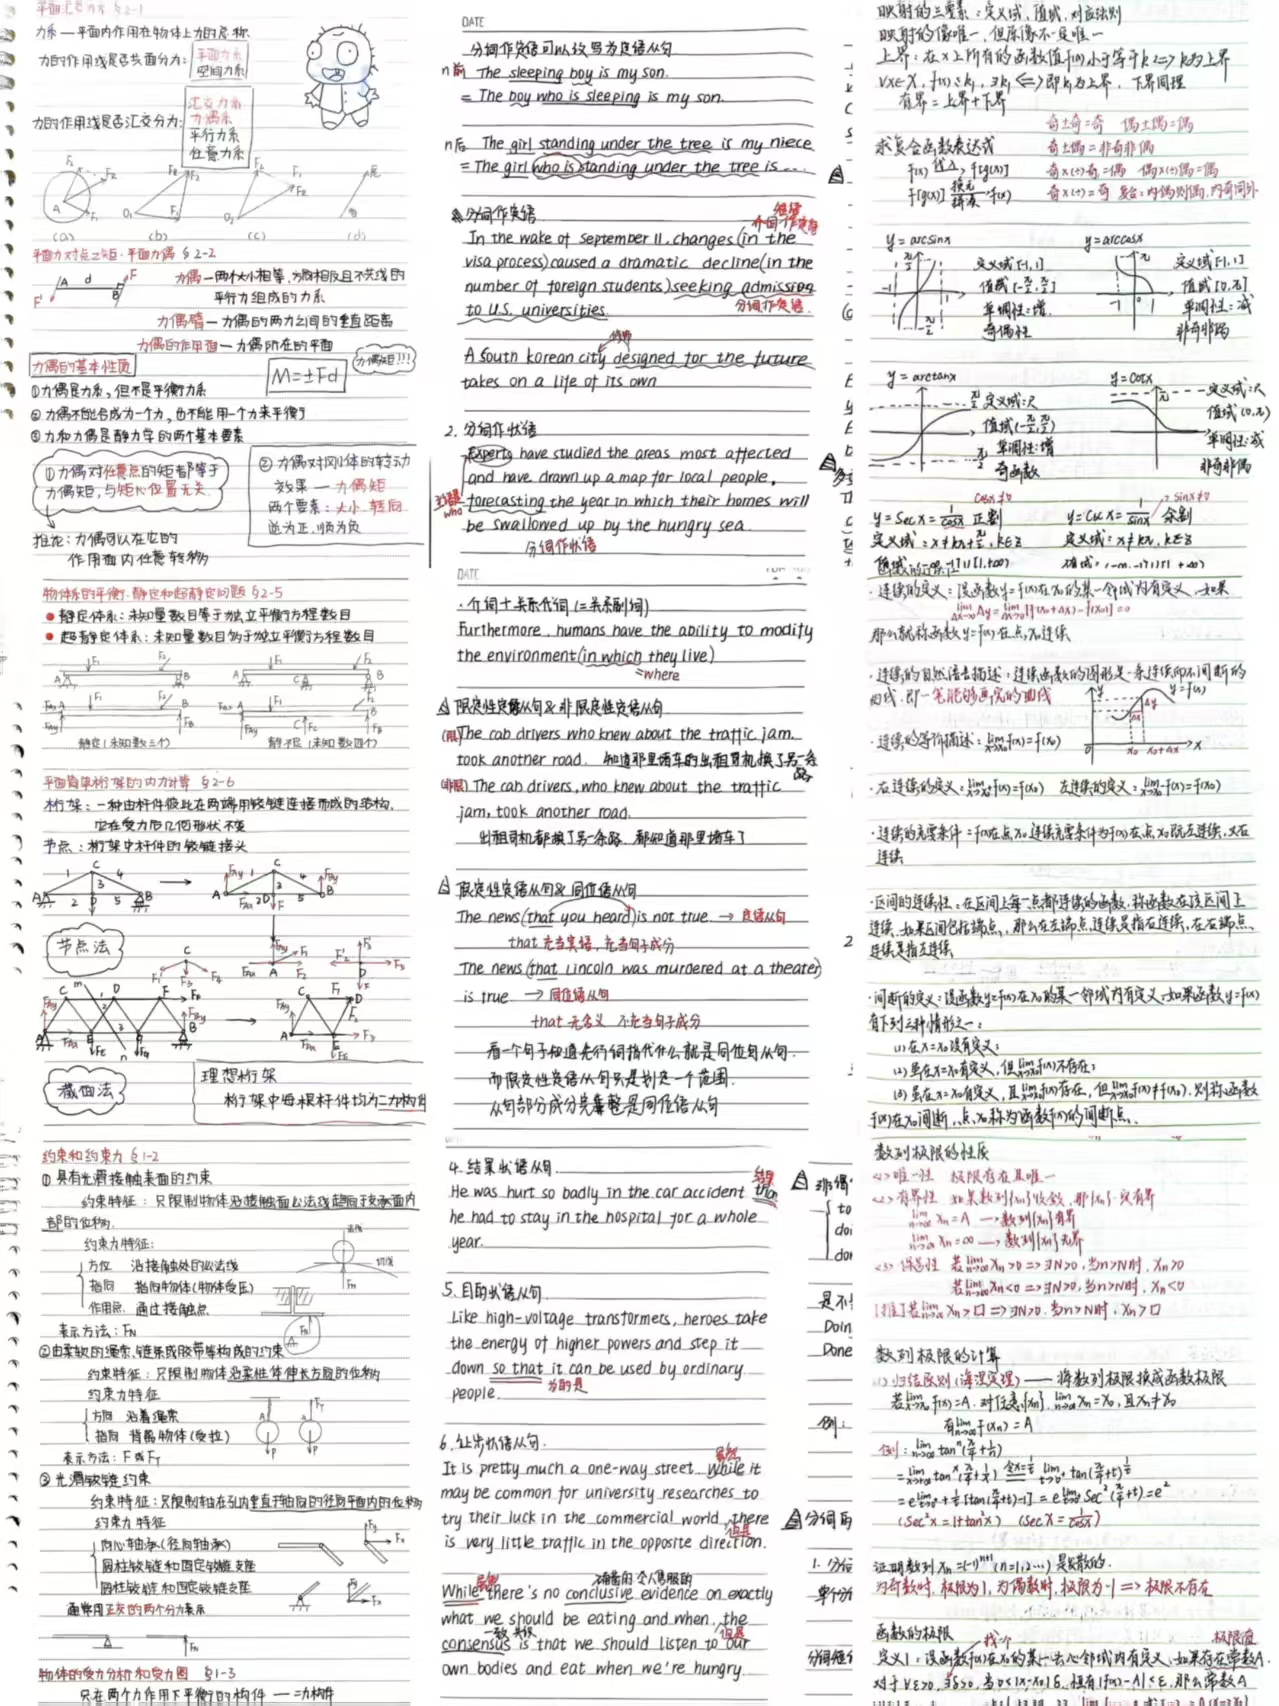 平面汇交力系 §2-1
力系—平面内作用在物体上力的总称
力的作用线是否共面分为:
平面力系
空间力系
力的作用线是否汇交分为:
汇交力系
力偶系
平行力系
任意力系
(a) (b) (c) (d)
平面力对点之矩·平面力偶 §2-2
力偶—两个大小相等,方向相反且不共线的
平行力组成的力系
力偶臂—力偶的两力之间的垂直距离
力偶的作用面—力偶所在的平面
力偶的基本性质
M=±Fd
力偶矩!!!
①力偶是力系,但不是平衡力系
②力偶不能合成为一个力,也不能用一个力来平衡
③力和力偶是静力学的两个基本要素
①力偶对任意点的矩都等于
力偶矩,与矩心位置无关.
②力偶对刚体的转动
效果—力偶矩
两个要素:大小、转向
逆为正,顺为负
推论:力偶可以在它的
作用面内任意转移
物体系的平衡·静定和超静定问题 §2-5
静定体系:未知量数目等于独立平衡方程数目
超静定体系:未知量数目多于独立平衡方程数目
静定(未知数三个)
静不定(未知数四个)
平面简单桁架的内力计算 §2-6
桁架:一种由杆件彼此在两端用铰链连接而成的结构,
它在受力后几何形状不变
节点:桁架中杆件的铰链接头
节点法
截面法
理想桁架
桁架中每根杆件均为二力构件
约束和约束力 §1-2
①具有光滑接触表面的约束
约束特征:只限制物体沿接触面公法线趋向于支承面内
部的位移.
约束力特征:
方位 沿接触处的公法线
指向 指向物体(物体受压)
作用点 通过接触点
表示方法:FN
②由柔软的绳索、链条或胶带等构成的约束
约束特征:只限制物体沿柔性体伸长方向的位移
约束力特征
方向 沿着绳索
指向 背离物体(受拉)
表示方法:F或FT
③光滑铰链约束
约束特征:只限制轴在孔内垂直轴向的径向平面内的位移
约束力特征
向心轴承(径向轴承)
圆柱铰链和固定铰链支座
圆柱铰链和固定铰链支座
通常用正交的两个分力表示
物体的受力分析和受力图 §1-3
只在两个力作用下平衡的构件—二力构件
DATE
分词作定语可以改写为定语从句
n前 The sleeping boy is my son.
= The boy who is sleeping is my son.
n后 The girl standing under the tree is my niece
= The girl who is standing under the tree is....
分词作定语
In the wake of september 11, changes (in the
visa process) caused a dramatic decline (in the
number of foreign students) seeking admission
to U.S. universities.
分词作定语
A south korean city designed for the future
takes on a life of its own
2. 分词作状语
Experts have studied the areas most affected
and have drawn up a map for local people,
forecasting the year in which their homes will
be swallowed up by the hungry sea.
分词作状语
DATE
·介词+关系代词(=关系副词)
Furthermore, humans have the ability to modify
the environment (in which they live)
=where
限定性定语从句&非限定性定语从句
(限) The cab drivers who knew about the traffic jam.
took another road. 知道那里堵车的出租司机换了另一条路
(非限) The cab drivers, who knew about the traffic
jam, took another road.
出租司机都换了另一条路,都知道那里堵车了
限定性定语从句&同位语从句
The news (that you heard) is not true. → 定语从句
that 充当宾语,充当句子成分
The news (that Lincoln was murdered at a theater)
is true → 同位语从句
that 无含义 不充当句子成分
看一个句子知道先行词指代什么就是同位句从句.
而限定性定语从句只是划定一个范围.
从句部分成分完整是同位语从句
4. 结果状语从句.
He was hurt so badly in the car accident that
he had to stay in the hospital for a whole
year.
5. 目的状语从句.
Like high-voltage transformers, heroes take
the energy of higher powers and step it
down so that it can be used by ordinary
people. 为的是
6. 让步状语从句.
It is pretty much a one-way street. While it
may be common for university researches to
try their luck in the commercial world, there
is very little traffic in the opposite direction.
虽然
While there's no conclusive evidence on exactly
what we should be eating and when, the
consensus is that we should listen to our
own bodies and eat when we're hungry.
映射的三要素:定义域,值域,对应法则
映射的像唯一,但原像不一定唯一
上界:在x上所有的函数值f(x)小于等于k1 <=> k1为上界
∀x∈X, f(x)≤k1, ∃k1 <=> 即k1为上界,下界同理
有界=上界+下界
奇±奇=奇 偶±偶=偶
求复合函数表达式 奇±偶=非奇非偶
f(x) 代入 f[g(x)] 奇×(÷)奇=偶 偶×(÷)偶=偶
y=arcsinx
定义域[-1,1]
值域[-π/2, π/2]
单调性:增
奇偶性
y=arccosx
定义域[-1,1]
值域[0,π]
单调性:减
非奇非偶
y=arctanx
定义域:R
值域(-π/2, π/2)
单调性:增
奇函数
y=cotx
定义域:R
值域(0,π)
单调性:减
非奇非偶
y=secx=1/cosx 正割 cosx≠0
y=cscx=1/sinx 余割 sinx≠0
定义域:x≠kπ+π/2, k∈Z 定义域:x≠kπ, k∈Z
·连续的定义:设函数y=f(x)在x0的某一邻域内有定义,如果
lim Δy=lim[f(x0+Δx)-f(x0)]=0
那么就称函数y=f(x)在点x0连续
·连续的自然语言描述:连续函数的图形是一条连续而不间断的
曲线,即一笔能够画完的曲线
·连续的等价描述:lim f(x)=f(x0)
·右连续的定义:lim f(x)=f(x0) 左连续的定义:lim f(x)=f(x0)
·连续的充要条件=f(x)在点x0连续充要条件为f(x)在点x0既左连续,又右
连续
·区间的连续性:在区间上每一点都连续的函数,称函数在该区间上
连续,如果区间包括端点,那么在左端点,连续是指右连续,在右端点,
连续是指左连续
·间断的定义:设函数y=f(x)在x0的某一邻域内有定义,如果函数y=f(x)
有下列三种情形之一:
(1)在x=x0没有定义;
(2)虽在x=x0有定义,但lim f(x)不存在;
(3)虽在x=x0有定义,且lim f(x)存在,但lim f(x)≠f(x0),则称函数
f(x)在x0间断,点x0称为函数f(x)的间断点.
数列极限的性质
<1>唯一性 极限存在且唯一
<2>有界性 如果数列{xn}收敛,那{xn}一定有界
lim xn=A —>数列{xn}有界
lim xn=∞ —>数列{xn}无界
<3>保号性 若lim xn>0 => ∃N>0,当n>N时,xn>0
若lim xn<0 => ∃N>0,当n>N时,xn<0
[推]若lim xn>□ => ∃N>0,当n>N时,xn>□
数列极限的计算
<1>归结原则(海涅定理)——将数列极限换成函数极限
若lim f(x)=A,对任意{xn},lim xn=x0,且xn≠x0
有lim f(xn)=A
(sec²x=1+tan²x) (secx=1/cosx)
证明数列xn=(-1)^(n+1) (n=1,2,...)是发散的.
为奇数时,极限为1,为偶数时,极限为-1 => 极限不存在
函数的极限
定义1:设函数f(x)在x0的某一去心邻域内有定义,如果存在常数A,
对于∀ε>0,∃δ>0,当0<|x-x0|<δ,恒有|f(x)-A|<ε,那么常数A